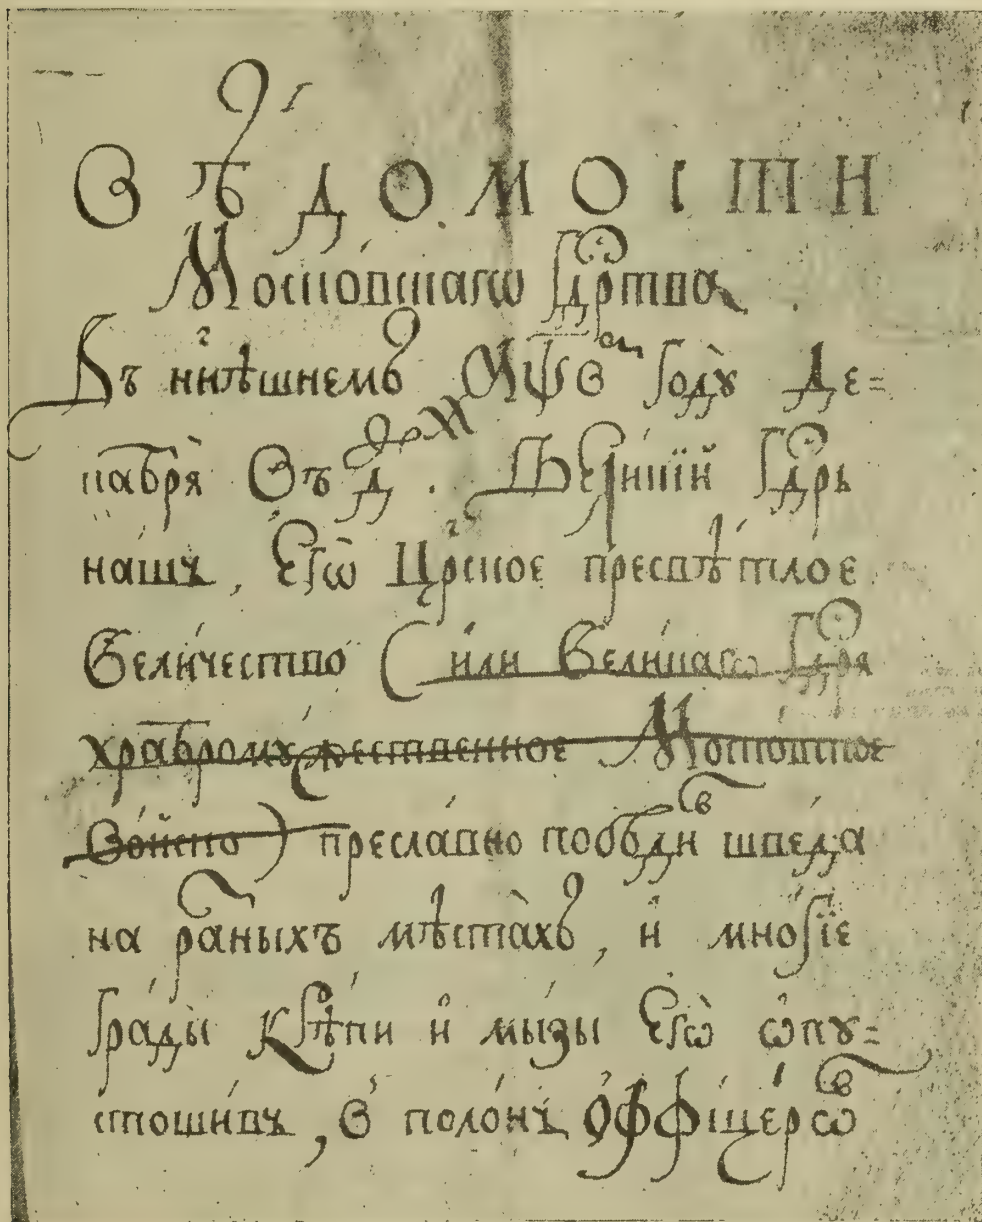 Вѣдомости
Московскагѡ Гдрⷭ҇тва
Въ нн҃ѣшнемъ ҂аѱв годꙋ де=
кабрѧ въ д҃. Великїй Гдрь
нашъ, Егѡ Црⷭ҇кое пресвѣтлое
Величество (или Великагѡ Гдрѧ
храбромꙋжественное Московское
Войско) преславно побѣди шведа
на разныхъ мѣстахъ, и многїе
грады и мызы Егѡ ѡпꙋ=
стошивъ, в полонъ Оффицерѡв